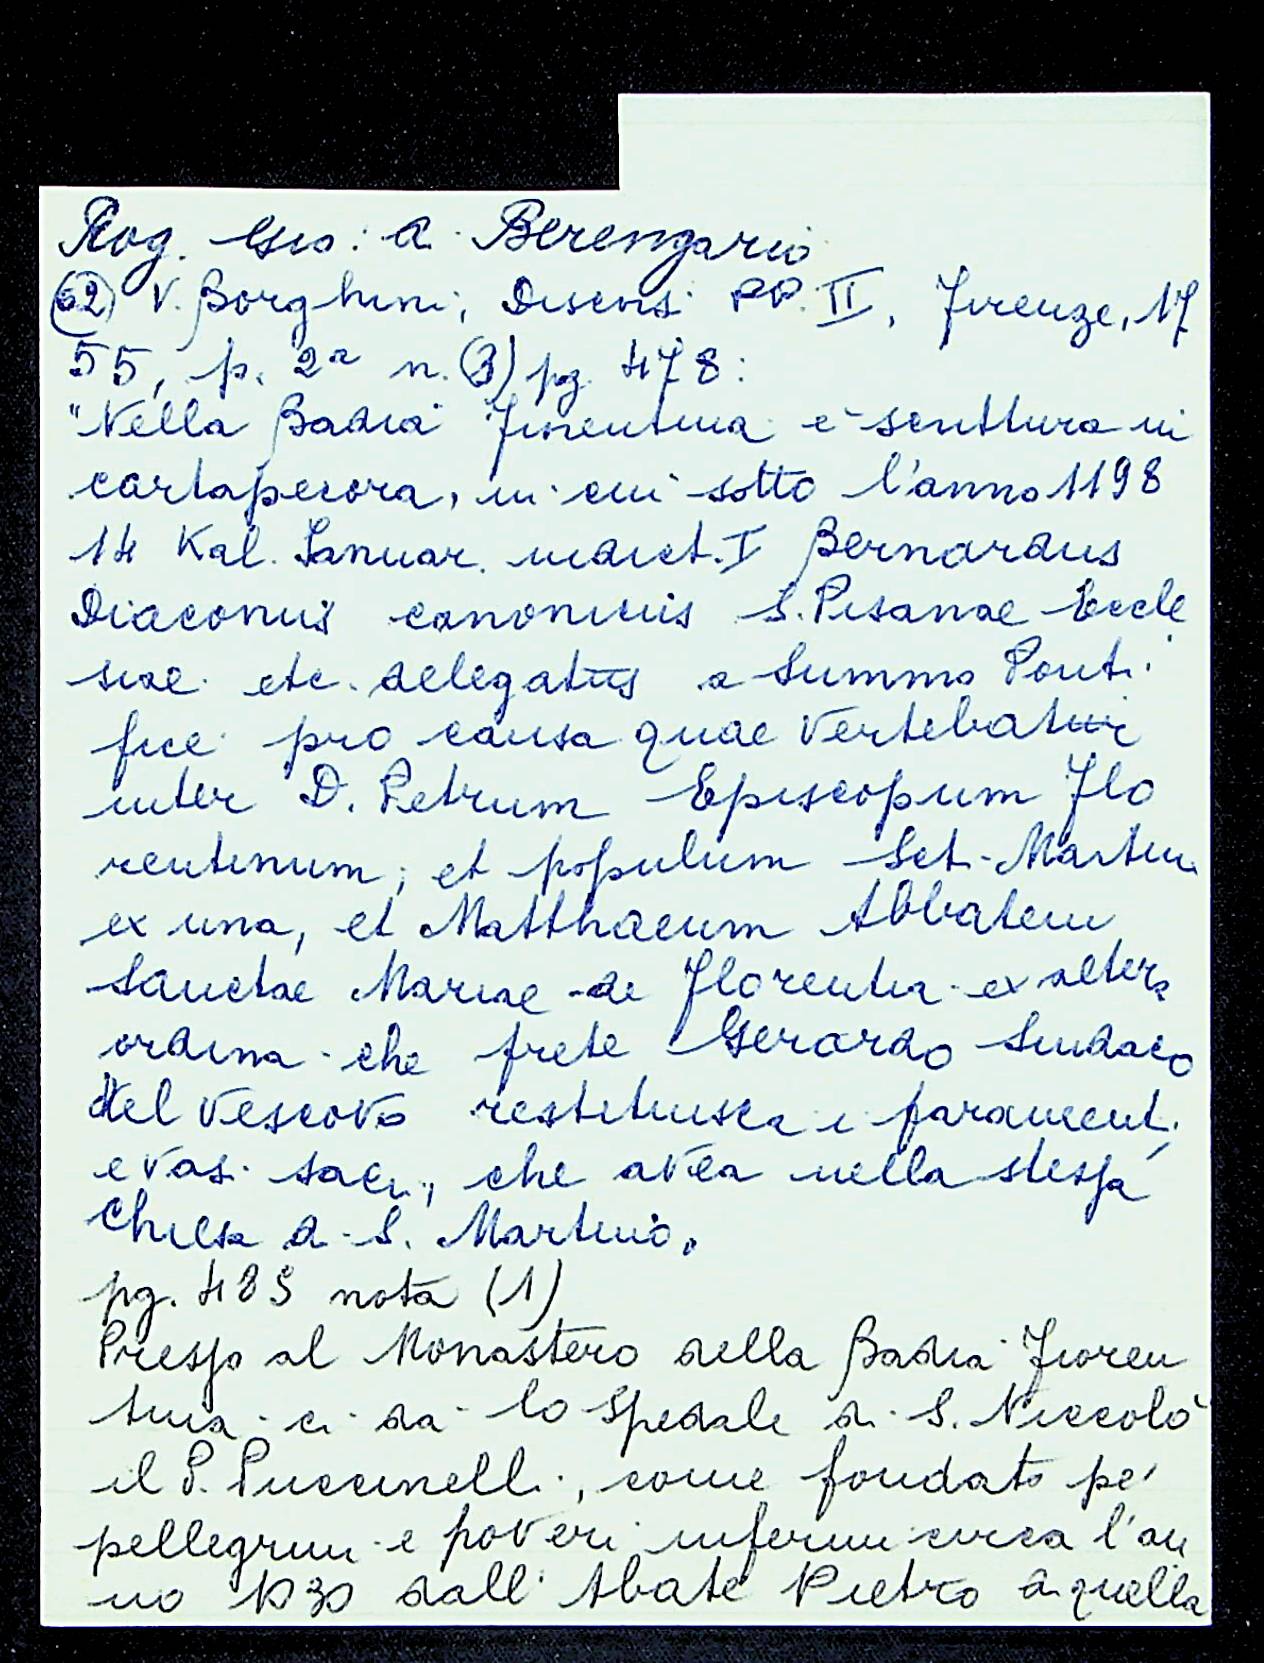 Rog. Gio: di Berengario
(62) V. Borghini, Discorsi PP. II, Firenze, 17
55, p. 2a n. (3) pg. 478:
"Nella Badia Fiorentina è scrittura in
cartapecora, in cui sotto l'anno 1198
14 Kal. Januar. indict. I Bernardus
Diaconus canonicus S. Pisanae Eccle
siae etc. delegatus a Summo Ponti
fice pro causa quae vertebatur
inter D. Petrum Episcopum Flo
rentinum, et populum Sct. Martini
ex una, et Matthaeum Abbatem
Sanctae Mariae de Florentia ex altera
ordina che prete Gerardo Sindaco
del Vescovo restituisca i paramenti,
e vasi sacri, che avea nella stessa
Chiesa di S. Martino.
pg. 485 nota (1)
Presso al Monastero della Badia Fioren
tina ci da lo Spedale di S. Niccolò
il P. Puccinelli, come fondato pe'
pellegrini e poveri infermi circa l'an
no 1030 dall' Abate Pietro di quella